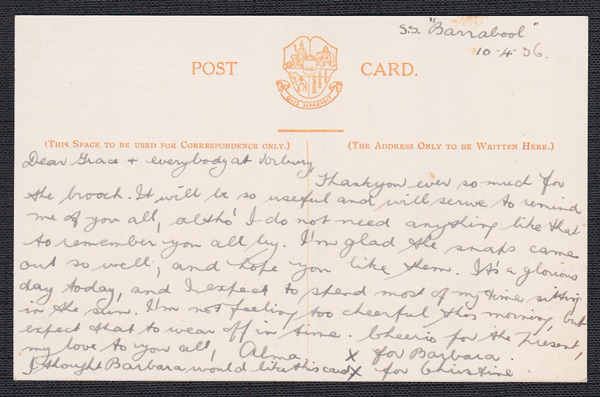 S.S. "Barrabool"
10-4-36.
POST CARD.
QUIS SEPARABIT
(THIS SPACE TO BE USED FOR CORRESPONDENCE ONLY.)
(THE ADDRESS ONLY TO BE WRITTEN HERE.)
Dear Grace + everybody at
Thankyou ever so much for
the brooch. It will be so useful and will serve to remind
me of you all, altho' I do not need anything like that
to remember you all by. I'm glad the snaps came
out so well, and hope you like them. It's a glorious
day today, and I expect to spend most of my time sitting
in the sun. I'm not feeling too cheerful this morning, but
expect that to wear off in time. Cheerio for the present,
my love to you all, Alma X for Barbara.
I thought Barbara would like this card X for Christine.